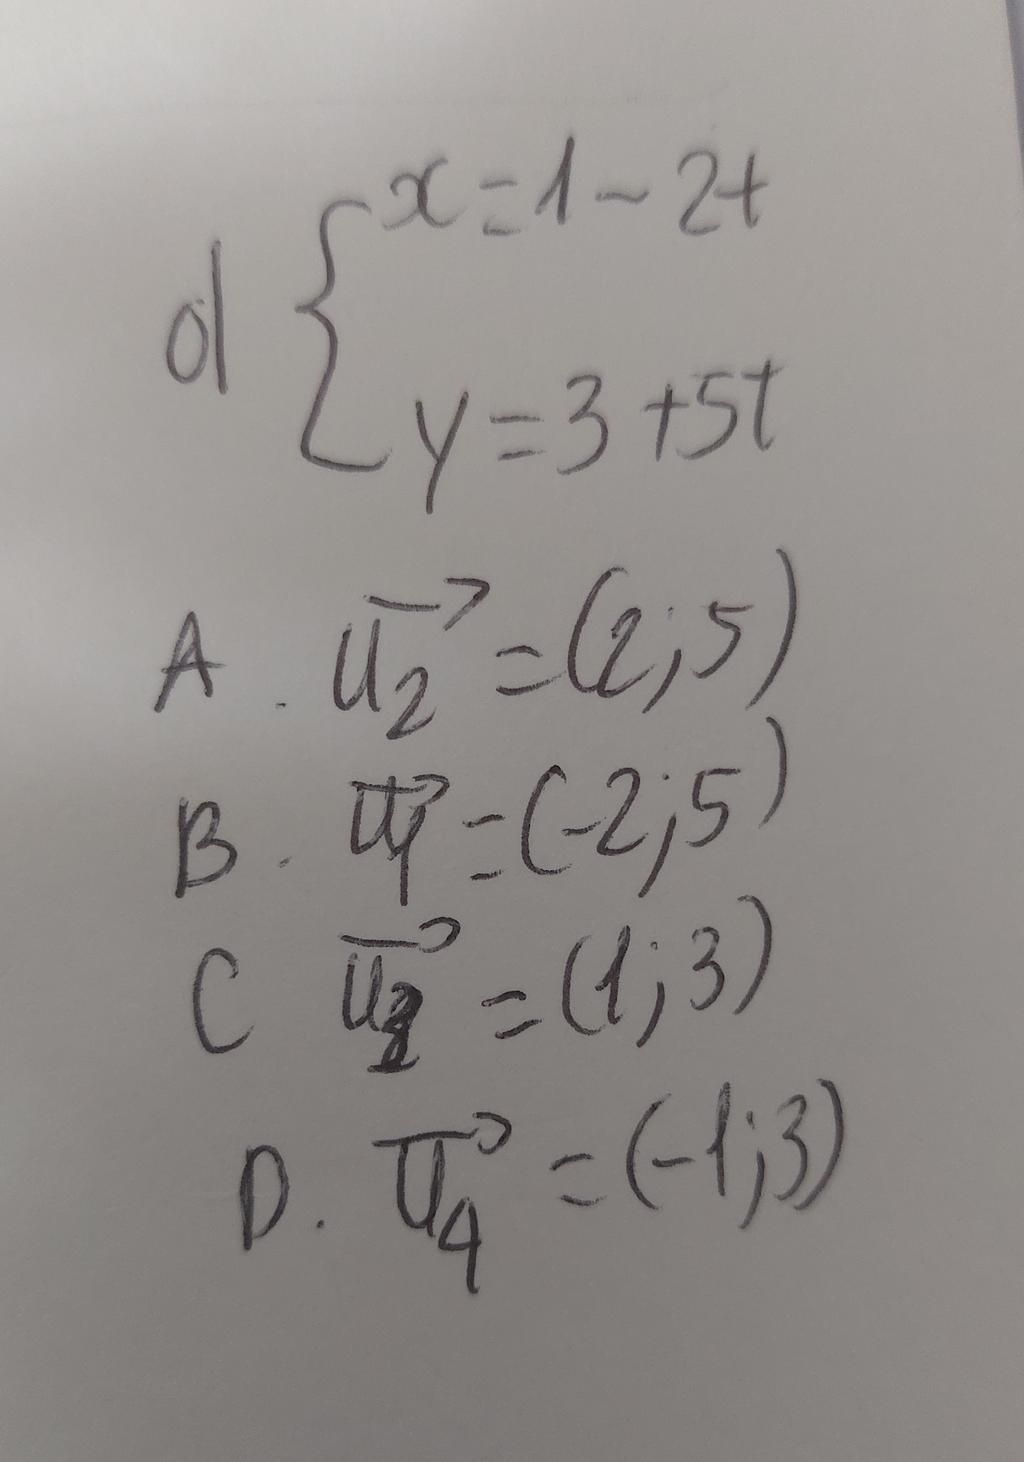 d { x = 1 - 2t
y = 3 + 5t
A. u₂⃗ = (2; 5)
B. u₁⃗ = (-2; 5)
C u₃⃗ = (1; 3)
D. u₄⃗ = (-1; 3)